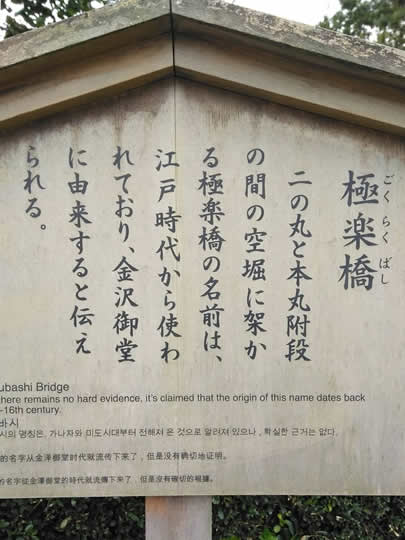 極楽橋
ごくらくばし
二の丸と本丸附段
の間の空堀に架か
る極楽橋の名前は、
江戸時代から使わ
れており、金沢御堂
に由来すると伝え
られる。
ubashi Bridge
there remains no hard evidence, it's claimed that the origin of this name dates back
-16th century.
바시
시의 명칭은, 가나자와 미도시대부터 전해져 온 것으로 알려져 있으나, 확실한 근거는 없다.
的名字从金泽御堂时代就流传下来了，但是没有确切地证明。
的名字從金澤御堂的時代就流傳下來了，但是沒有確切的根據。